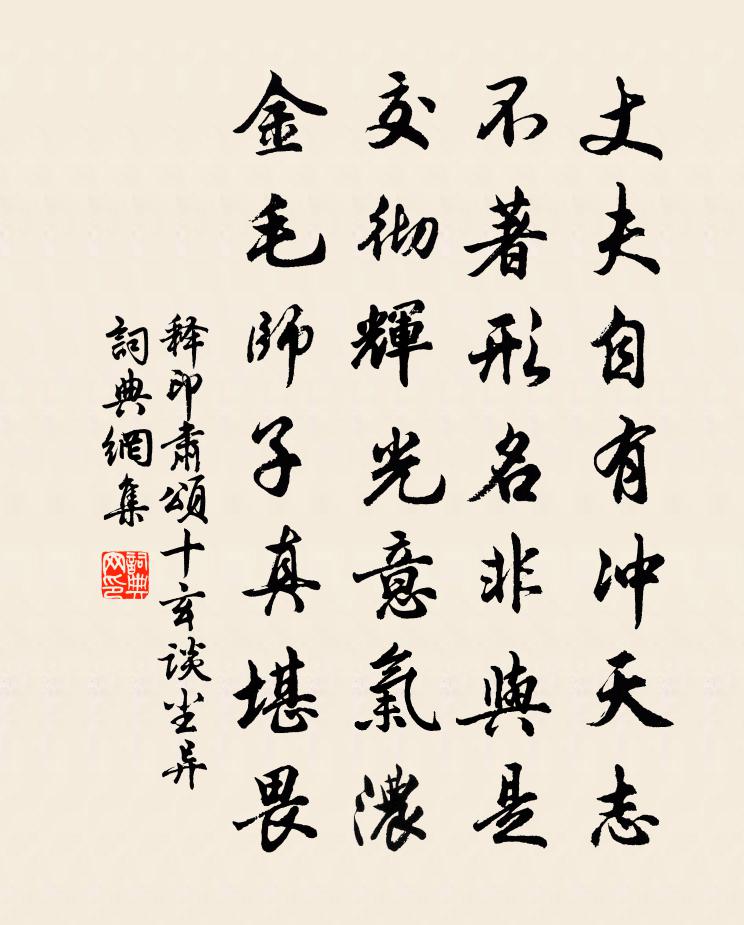 丈夫自有冲天志
不著形名非與是
交彻輝光意氣濃
金毛師子真堪畏
释印肅頌十玄談尘异
詞典網集
詞典网印